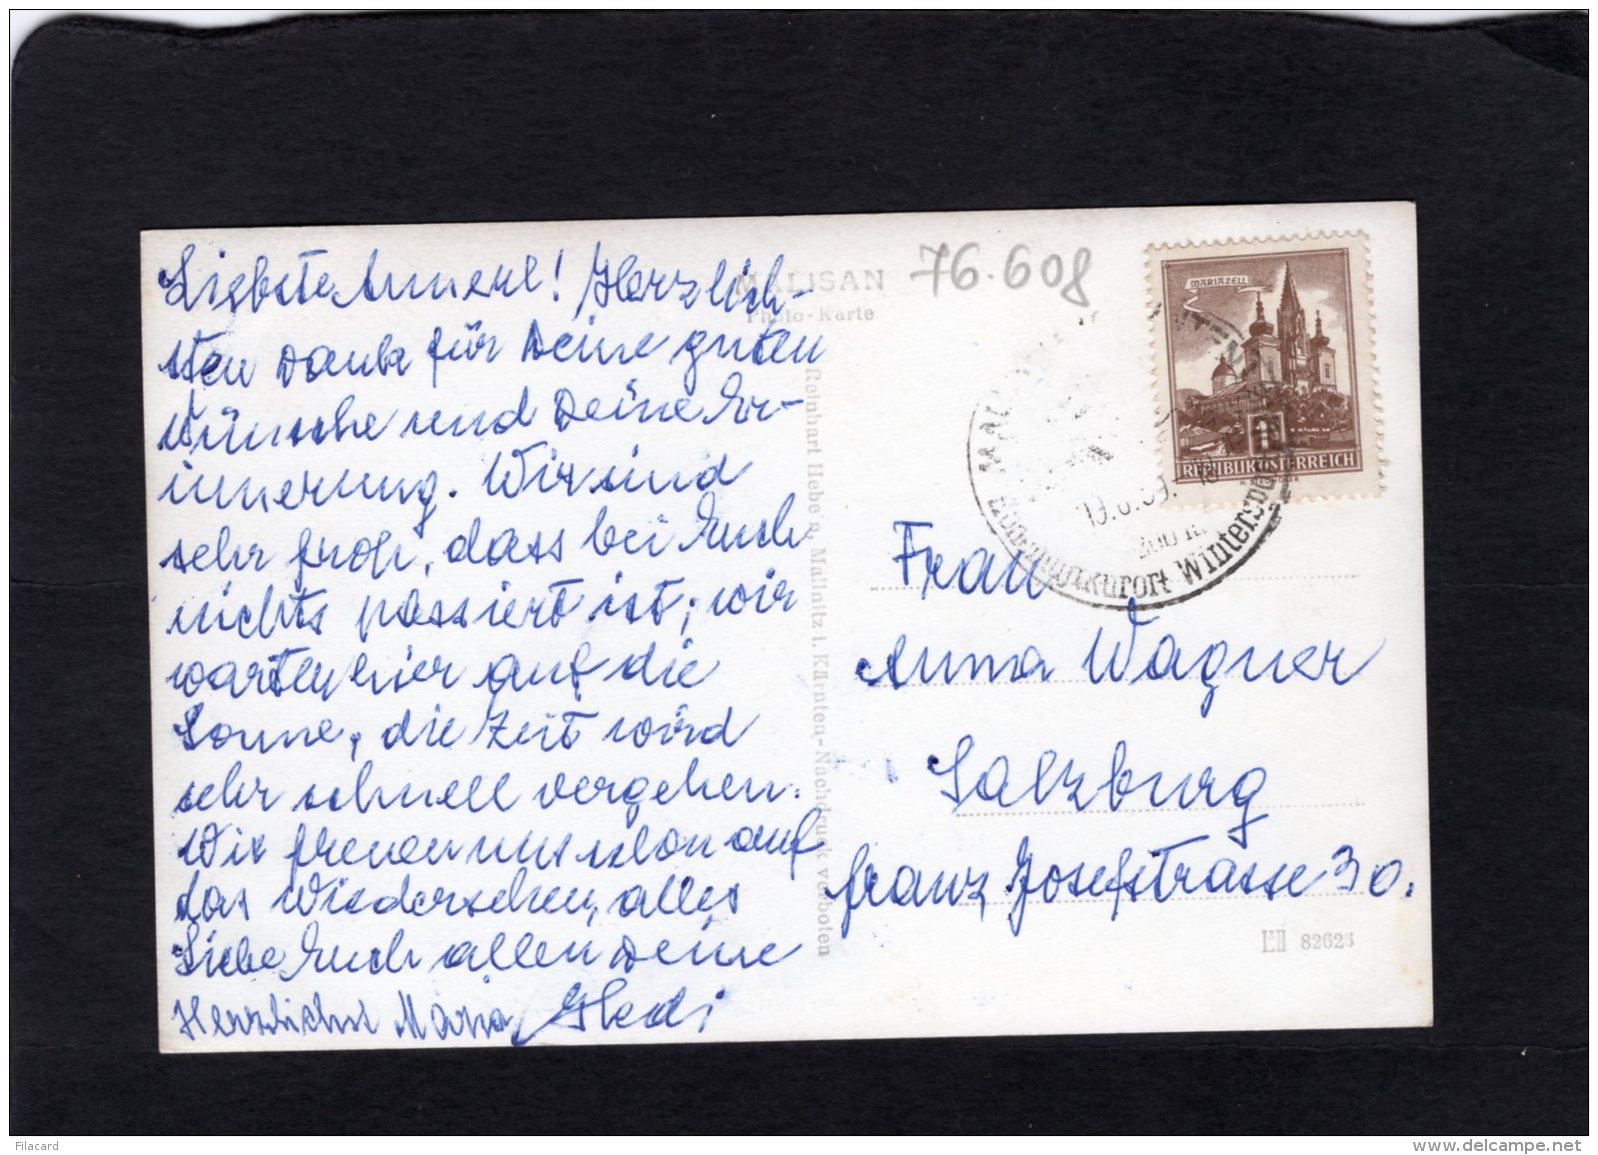 Liebste Annerl! Herzlich-
sten Dank für Deine guten
Wünsche und Deine Er-
innerung. Wir sind
sehr froh, dass bei Euch
nichts passiert ist; wir
warten hier auf die
Sonne, die Zeit wird
sehr schnell vergehen.
Wir freuen uns schon auf
das Wiedersehen, alles
Liebe Euch allen Deine
Herzlichst Maria Hedi
MALISAN
Photo-Karte
76.608
Reinhart Hebein, Mallnitz i. Kärnten-Nachdruck verboten
MARIAZELL
REPUBLIK ÖSTERREICH
Wintersport
Frau
Anna Wagner
Salzburg
Franz Josefstrasse 30.
82623
Filacard
www.delcampe.net